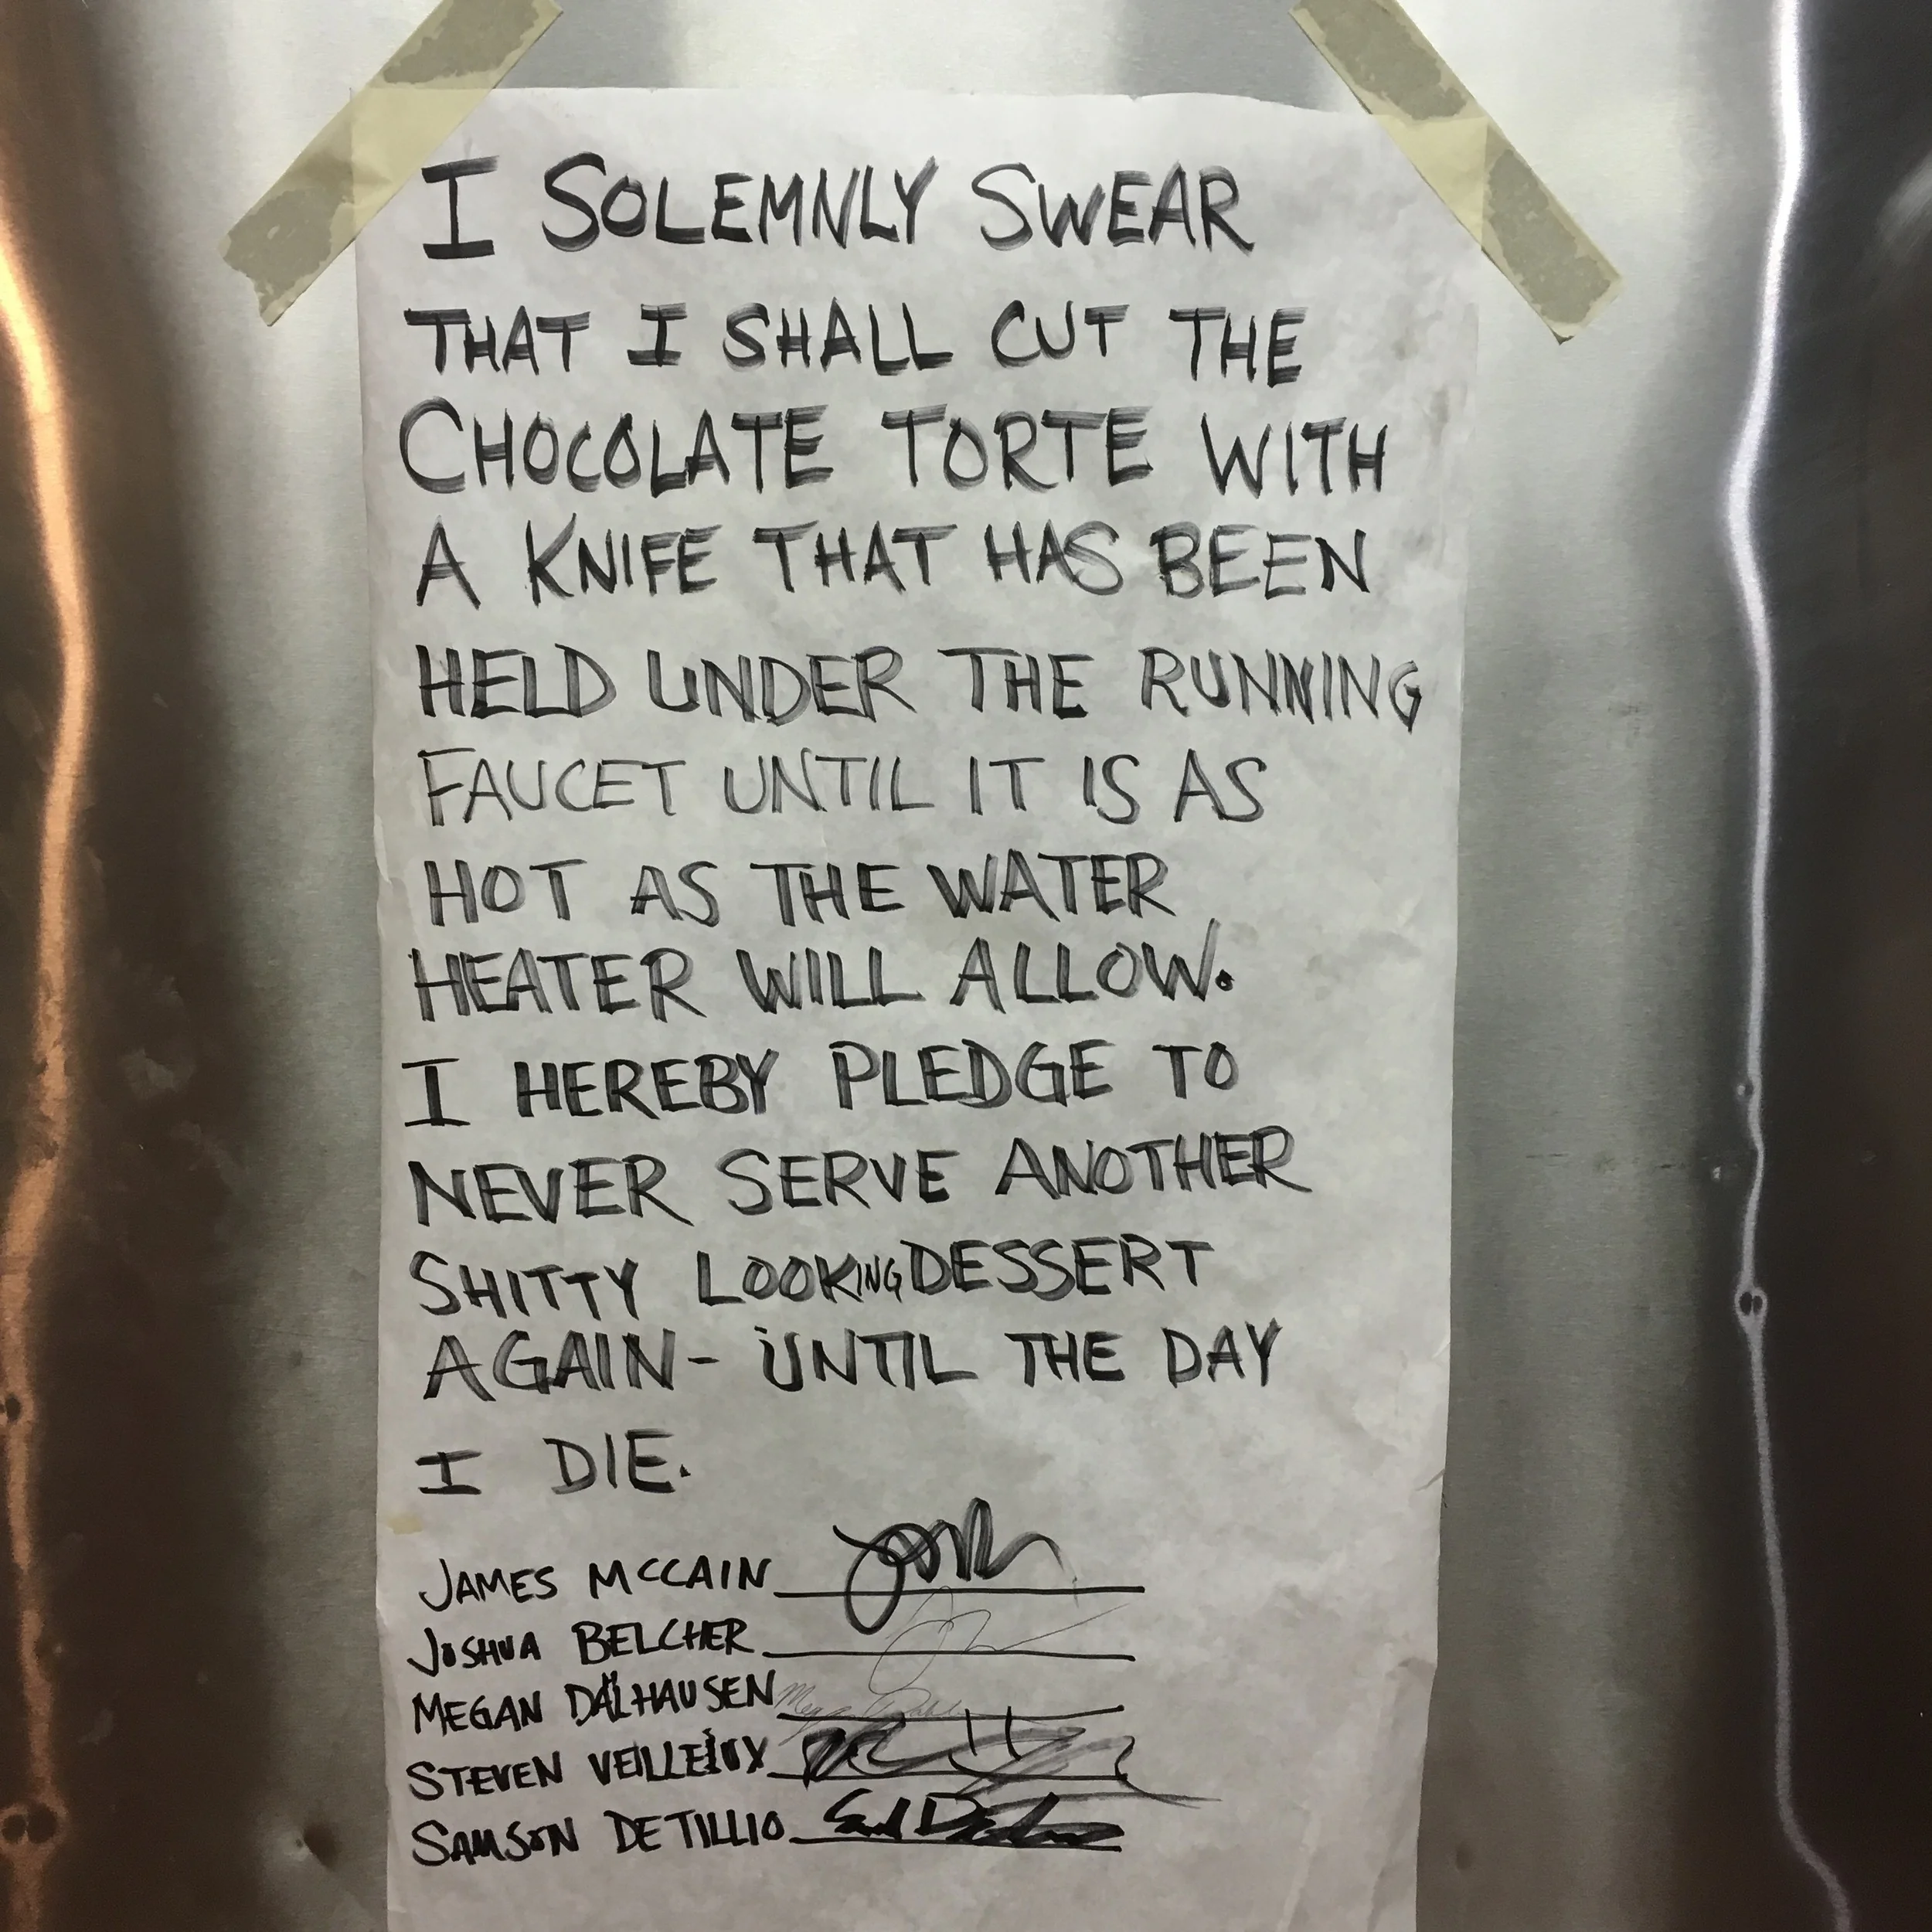 I SOLEMNLY SWEAR
THAT I SHALL CUT THE
CHOCOLATE TORTE WITH
A KNIFE THAT HAS BEEN
HELD UNDER THE RUNNING
FAUCET UNTIL IT IS AS
HOT AS THE WATER
HEATER WILL ALLOW.
I HEREBY PLEDGE TO
NEVER SERVE ANOTHER
SHITTY LOOKING DESSERT
AGAIN - UNTIL THE DAY
I DIE.
JAMES MCCAIN
JOSHUA BELCHER
MEGAN DALHAUSEN
STEVEN VEILLEUX
SAMSON DETILLIO